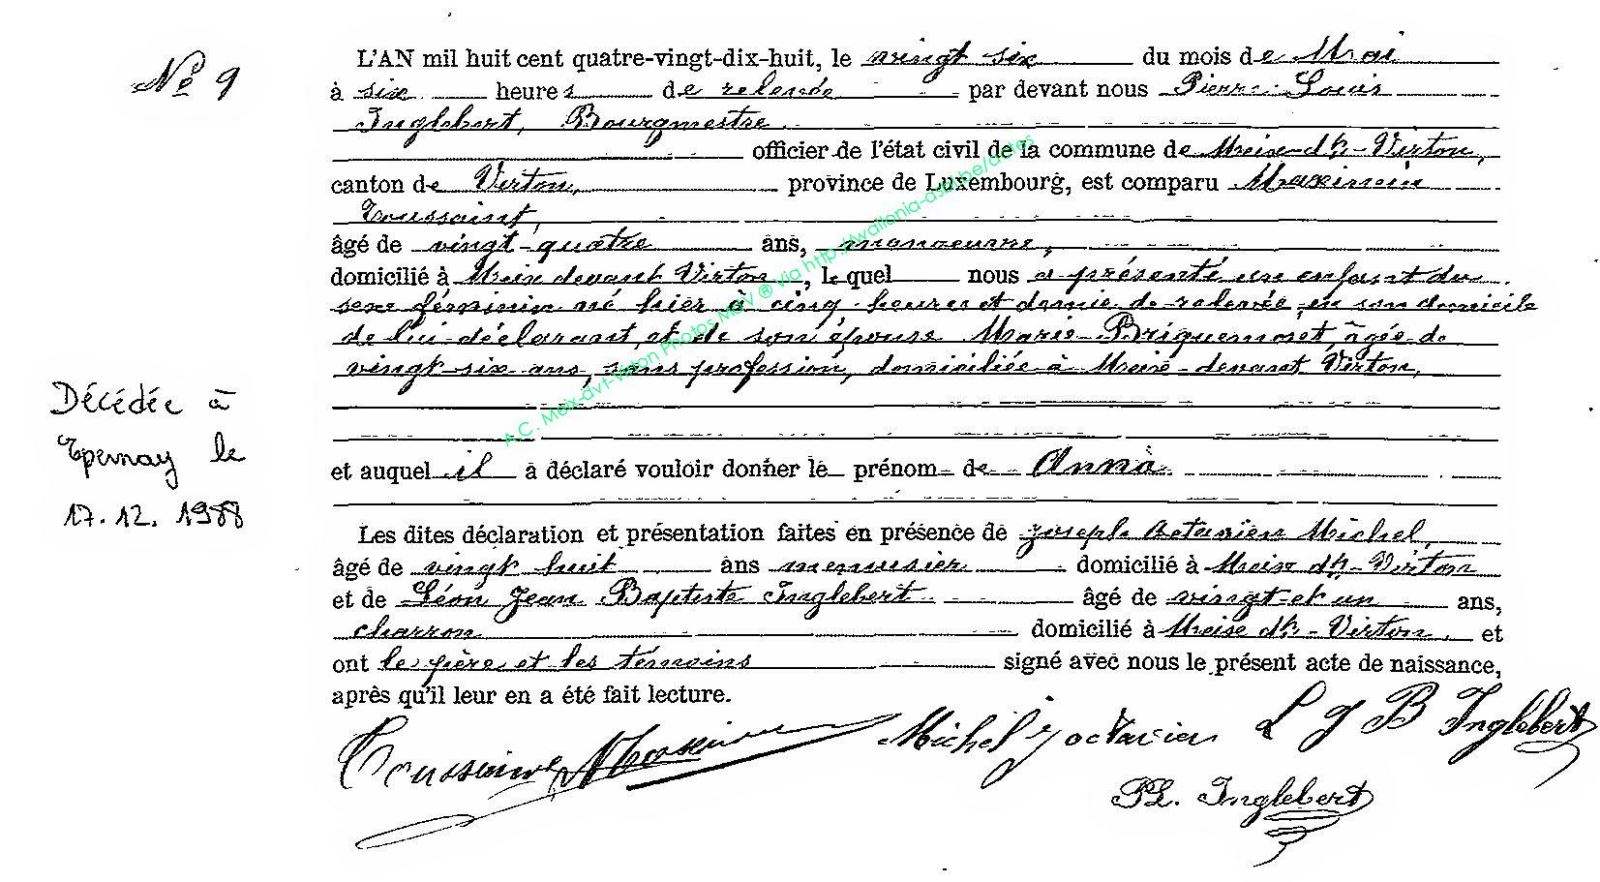 No 9
L'AN mil huit cent quatre-vingt-dix-huit, le vingt six du mois de Mai
à six heures de relevée par devant nous Pierre Louis
Inglebert, Bourgmestre
officier de l'état civil de la commune de Meix-dt-Virton,
canton de Virton, province de Luxembourg, est comparu Maximin
Toussaint,
âgé de vingt-quatre ans, manoeuvre,
domicilié à Meix devant Virton, lequel nous a présenté un enfant du
sexe féminin né hier à cinq heures et demie de relevée, en son domicile
de lui déclarant, et de son épouse Marie Briquemont, âgée de
vingt-six ans, sans profession, domiciliée à Meix-devant Virton,
Décédée à
Epernay le
17.12.1988
et auquel il a déclaré vouloir donner le prénom de Anna
Les dites déclaration et présentation faites en présence de Joseph Octavien Michel,
âgé de vingt huit ans menuisier domicilié à Meix dt-Virton
et de Léon Jean Baptiste Inglebert âgé de vingt-et un ans,
charron domicilié à Meix dt-Virton et
ont le père et les témoins signé avec nous le présent acte de naissance,
après qu'il leur en a été fait lecture.
Toussaint Maximin Michel J octavien L J B Inglebert
PL. Inglebert
A.C. Meix-dvt-Virton Photos MDV ® via http://wallonia-asbl.be/actes